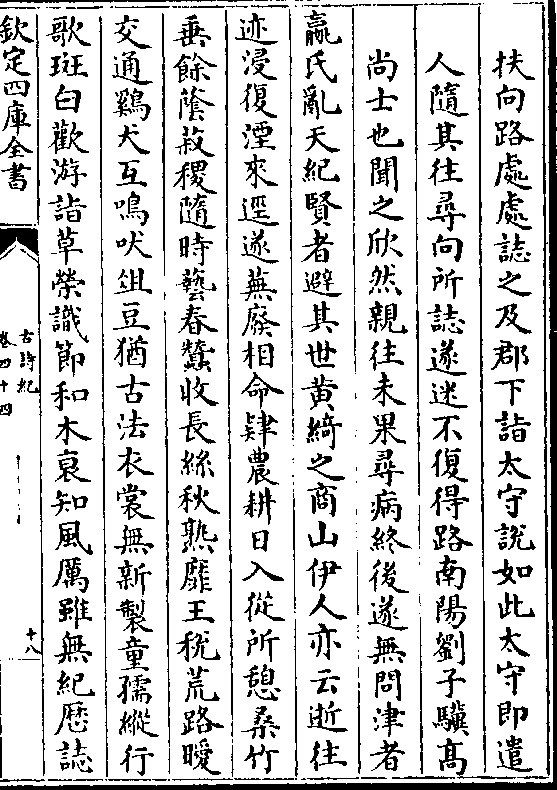 扶向路處處誌之及郡下詣太守說如此太守即遣
人隨其往尋向所誌遂迷不復得路南陽劉子驥高
尚士也聞之欣然親往未果尋病終後遂無問津者
嬴氏亂天紀賢者避其世黄綺之商山伊人亦云逝往
迹浸復湮來逕遂蕪廢相命肄農耕日入從所憩桑竹
垂餘蔭菽稷隨時藝春蠶收長絲秋熟靡王稅荒路曖
交通鷄犬互鳴吠俎豆猶古法衣裳無新製童孺縱行
歌斑白歡游詣草榮識節和木衰知風厲雖無紀厯誌
欽定四庫全書
古詩紀
卷四十四
十八